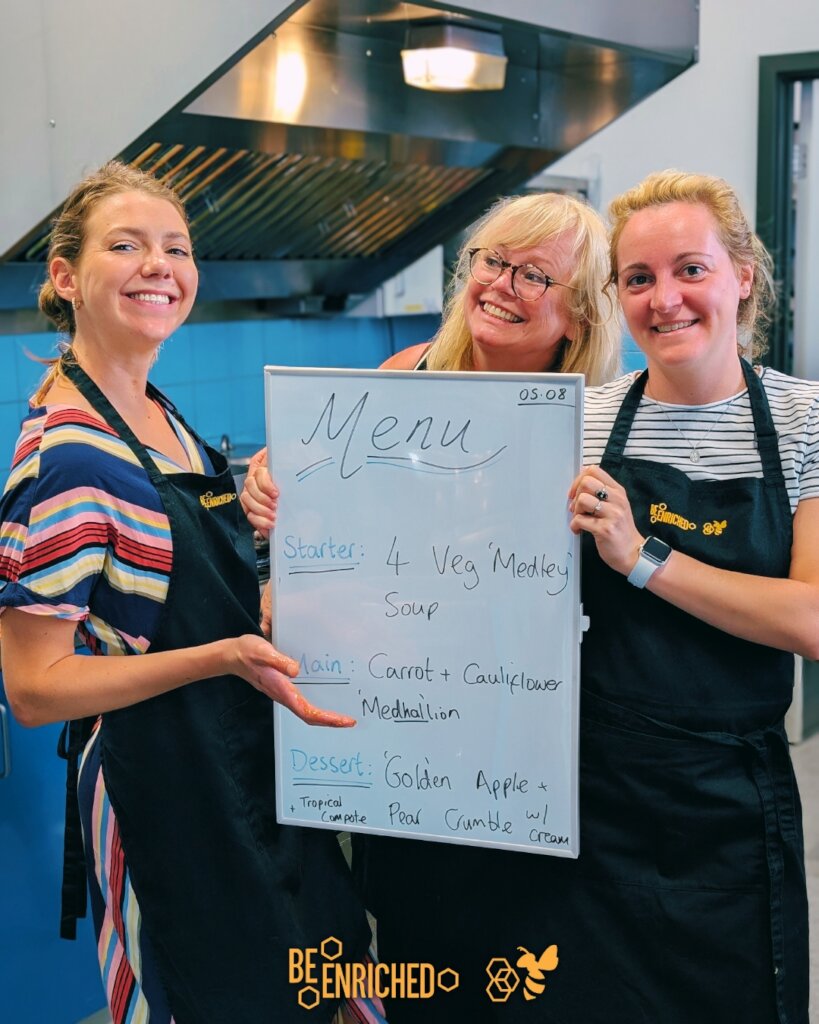 05.08
Menu
Starter: 4 Veg 'Medley'
Soup
Main: Carrot + Cauliflower
'Medhal'lion
Dessert: 'Gol'den Apple +
+ Tropical Compote Pear Crumble w/ cream
BE ENRICHED
BE ENRICHED
BE ENRICHED